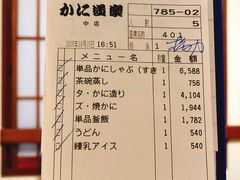 かに道楽
中店
785-02
人数 5
座席名 401
16:51
メニュー名 数量 金額
単品かにしゃぶ(すき 1 6,588
茶碗蒸し 1 756
タ・かに造り 4 4,104
ズ・焼かに 1 1,944
単品釜飯 1 1,782
うどん 1 540
練乳アイス 1 540